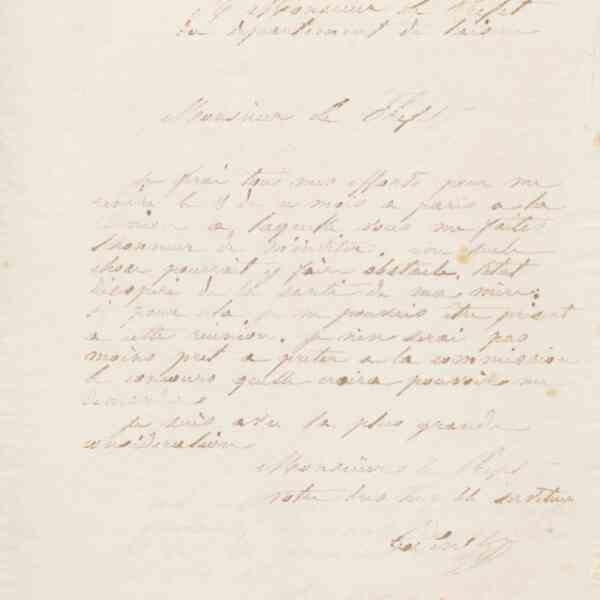 a Monsieur le Préfet
du département de laisne
Monsieur le Préfet
je ferai tous mes efforts pour me
rendre le 8 de ce mois a paris a la
réunion a laquelle vous me faites
lhonneur de minviter. une seule
chose pourrait y faire obstacle. létat
désespéré de la santé de ma mère.
si pour cela je ne pouvais être présent
a cette réunion. je nen serai pas
moins pret a preter a la commission
le concours quelle croira pouvoir me
demander
je suis avec la plus grande
considération
Monsieur le Préfet
votre serviteur